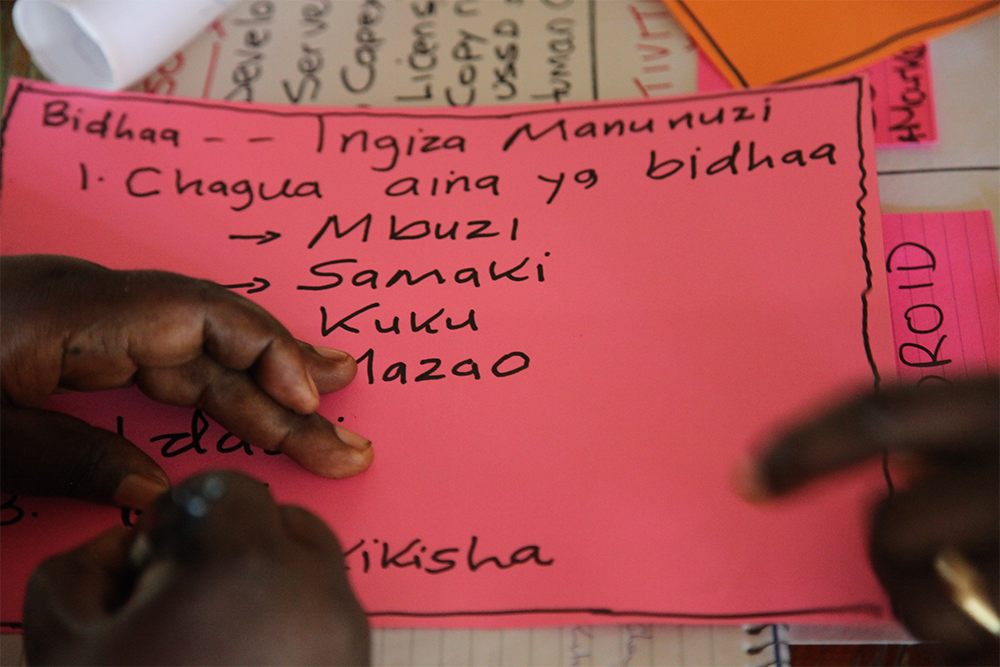 Develo
Serve
Capex
Licens
Copy r
USSD
Human
TIVIT
Bidhaa -- Ingiza Manunuzi
1. Chagua aina ya bidhaa
→ Mbuzi
→ Samaki
Kuku
Mazao
3.
kikisha
ROID